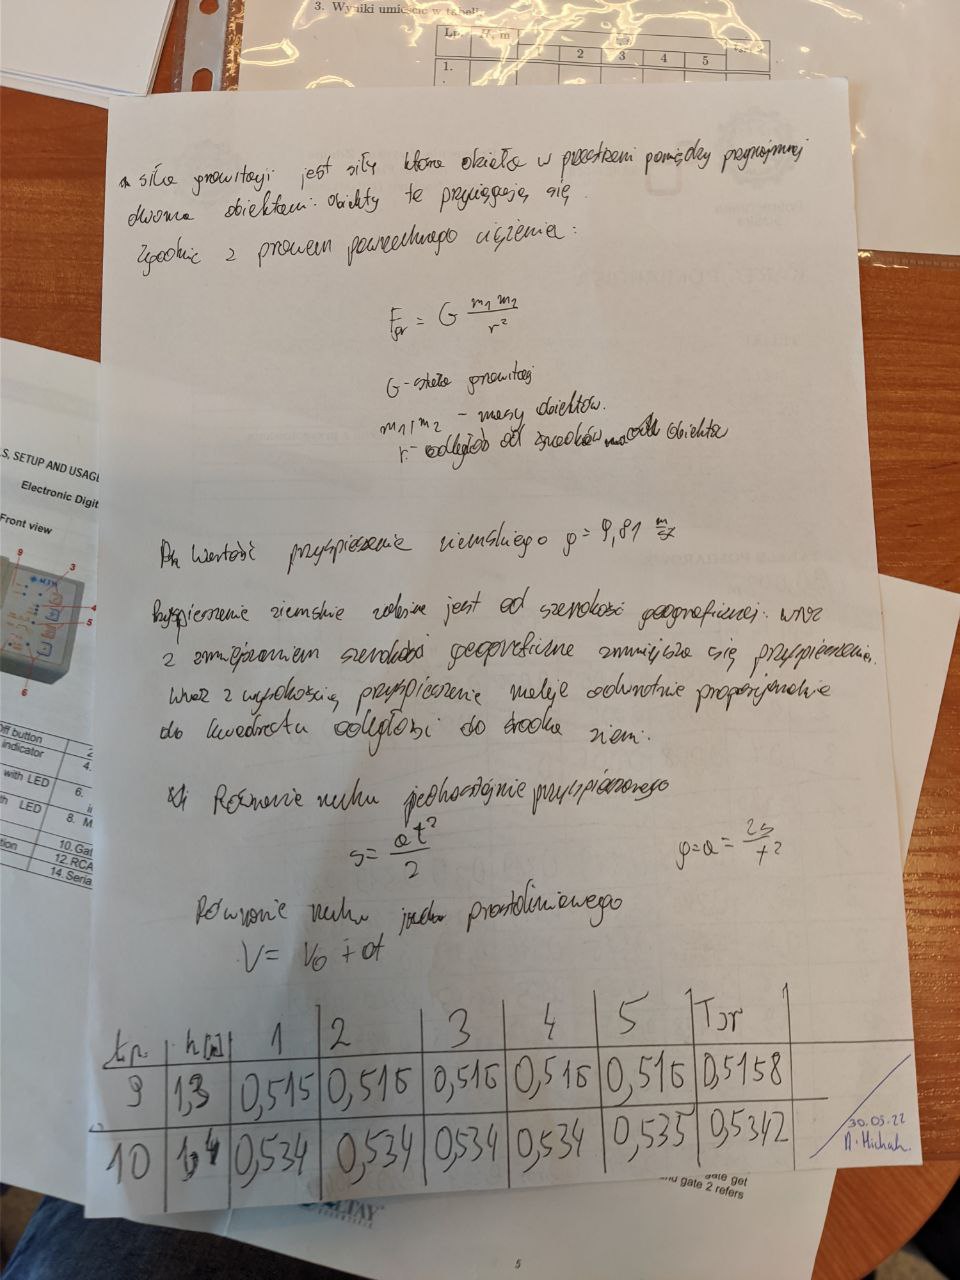 3. Wyniki umieścić w tabeli
Lp. H, m
1 2 3 4 5
1.
siła grawitacji jest siłą która działa w przestrzeni pomiędzy przynajmniej
dwoma obiektami. obiekty te przyciągają się.
Zgodnie z prawem powszechnego ciążenia:
Fgr = G m1 m2 / r²
G - stała grawitacji
m1, m2 - masy obiektów.
r - odległość od środków obiekta
Wartość przyspieszenie ziemskiego g = 9,81 m/s2
Przyspieszenie ziemskie zależne jest od szerokość geograficznej. wraz
z zmniejszaniem szerokość geograficzne zmniejsza się przyspieszenie.
Wraz z wysokością przyspieszenie maleje odwrotnie proporcjonalnie
do kwadratu odległości do środka ziemi.
Równanie ruchu jednostajnie przyspieszonego
s = at² / 2 g = a = 2s / t²
Równanie ruchu prostoliniowego
V = V0 + at
Lp. h[m] 1 2 3 4 5 Tśr
9 1,3 0,515 0,516 0,516 0,516 0,516 0,5158
10 1,4 0,534 0,534 0,534 0,534 0,535 0,5342
30.05.22
S, SETUP AND USAGE
Electronic Digit
Front view
9
3
4
5
6
Off button
indicator
4.
with LED
6.
th LED
8. M
10. Gat
tion
12. RCA
14. Seria
gate get
and gate 2 refers
5